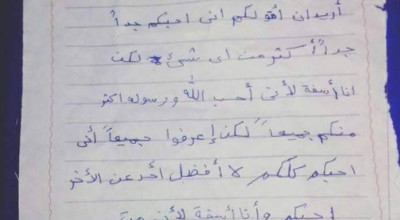 أريد ان أقولكم انى احبكم جداً
جداً أكثر من اى شئ لكن
انا أسفة لأنى أحب الله ورسوله اكثر
منكم جميعاً لكن إعرفوا جميعاً أنى
احبكم كلكم لا أفضل أحد عن الأخر
احبكم وأنا أسفة لأن